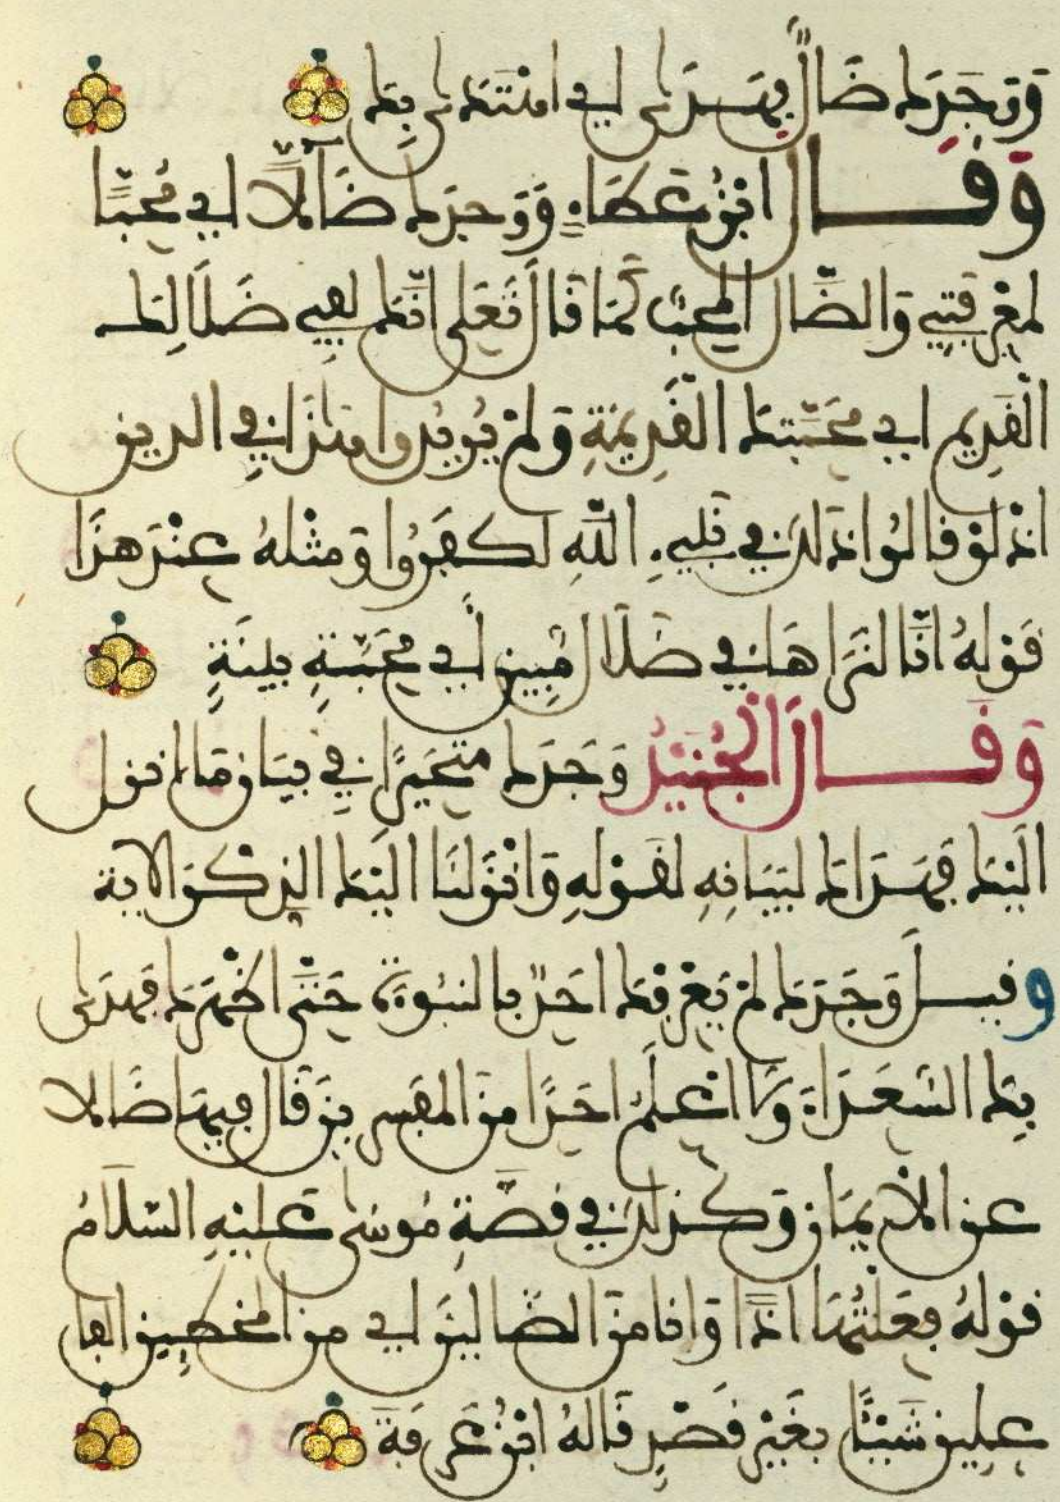 وَوَجَدَكَ ضَالًّا فَهَدَى أي اهْتَدَى بِكَ
وَقَالَ ابْنُ عَطَاءٍ وَوَجَدَكَ ضَآلًّا أي مُحِبًّا
لمَعْرِفَتِي وَالضَّالُّ المُحِبُّ كَمَا قَالَ تَعَلى انَّكَ لَفِي ضَلَالِكَ
الْقَدِيمِ أي مَحَبَّتِكَ الْقَدِيمَةِ وَلَمْ يُرِيدُوا هَاهُنَا فِي الدين
اذْ لَوْ قَالُوا ذَلكَ فِي نَبِيءِ اللَّهِ لَكَفَرُوا وَمثْلهُ عِنْدَ هَذَا
قَوْلهُ انَّا لَنَرَاهَا فِي ضَلَالٍ مُبِينٍ أي مَحَبَّةٍ بَيِّنَةٍ
وَقَالَ الْجُنَيْدُ وَجَدَكَ مُتَحَيِّرًا فِي بَيَانِ مَا انزل
الَيْكَ فَهَدَاكَ لبَيَانِهِ لقَوْلهِ وَانْزَلْنَا الَيْكَ الذِّكْرَ الاية
وقيلَ وَجَدَكَ لَمْ يَعْرِفْكَ احَدٌ بالنبُوءَةِ حَتَّى اظْهَرَكَ فَهَدَى
بِكَ السُّعَدَاءَ وَلَا اعْلَمُ احَدًا مِنَ المفَسِّرِينَ قَالَ فِيهَا ضَالا
عن الْايمَانِ وَكَذلكَ فِي قصَّةِ مُوسَى عَلَيْهِ السَّلَامُ
قَوْلهُ فَعَلْتُهَا اذًا وَانَا مِنَ الضَّالينَ أي من المخطِئِين الفا
علين شَيْئًا بِغَيْرِ قَصْدٍ قَالهُ ابْنُ عَرَفَةَ